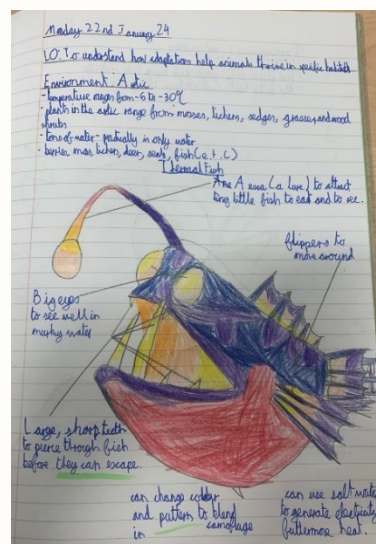 Monday 22nd January 24
LO: To understand how adaptations help animals thrive in specific habitats
Environment: Artic
-temperature ranges from -6 to -30°C
-plants in the artic range from mosses, lichens, sedges, grasses, and wood
shrubs
-tons of water - gradually is only water
-berries, moss, lichen, deer, seals, fish (e.t.c)
Thermal Fish
(a lure) to attract
little fish to eat and to see.
flippers to
move around
Big eyes
to see well in
murky water
Large, sharp teeth
to pierce through fish
before they can escape.
can change colour
and pattern to blend
in camoflage
can use salt water
to generate electricity
futtermore heat.